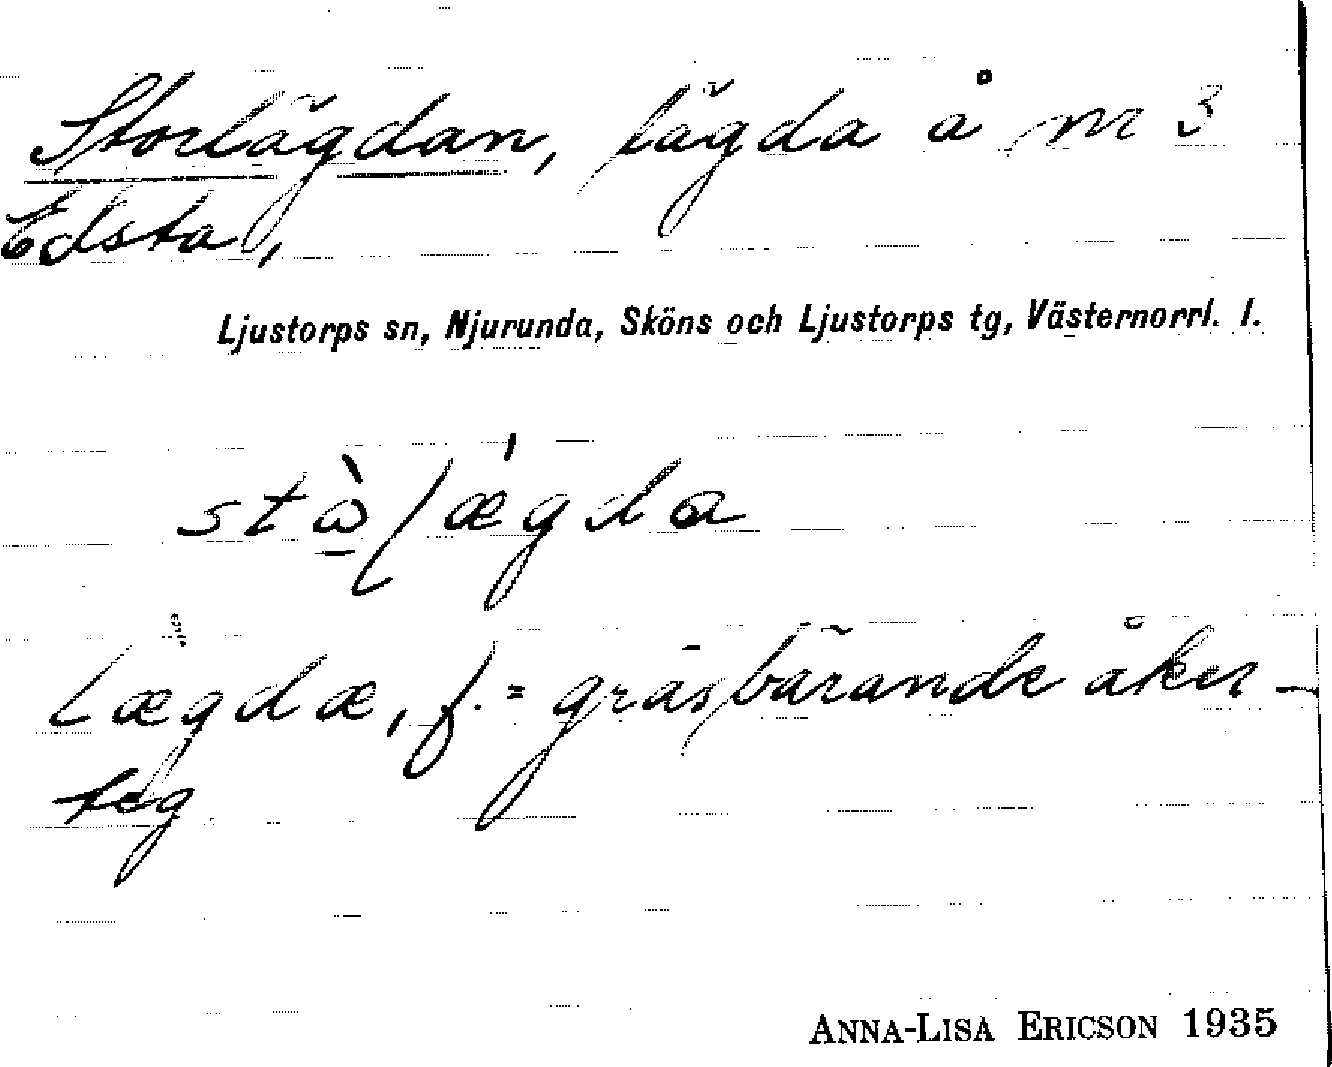 Storlägdan, lägda å nr 3
Edsta,
Ljustorps sn, Njurunda, Sköns och Ljustorps tg, Västernorrl. l.
stɷ̀lægda
Lægdæ, f. = gräsbärande åker-
teg
ANNA-LISA ERICSON 1935